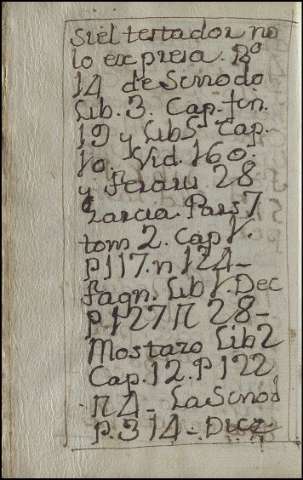 si el testador no
lo expresa. Bº
14 de Sinodo
Lib. 3. Cap. fin.
19 y Lib 5 Cap.
10. Vid. 160.
y 28
Garcia. Pars 7
tom 2. Cap 1.
P 117. n 124 -
Fagn. Lib 1. Dec
P. 127 n 28 -
Mostazo Lib 2
Cap. 12. P 122
n 4 - La Sinod
P. 314 - Dice